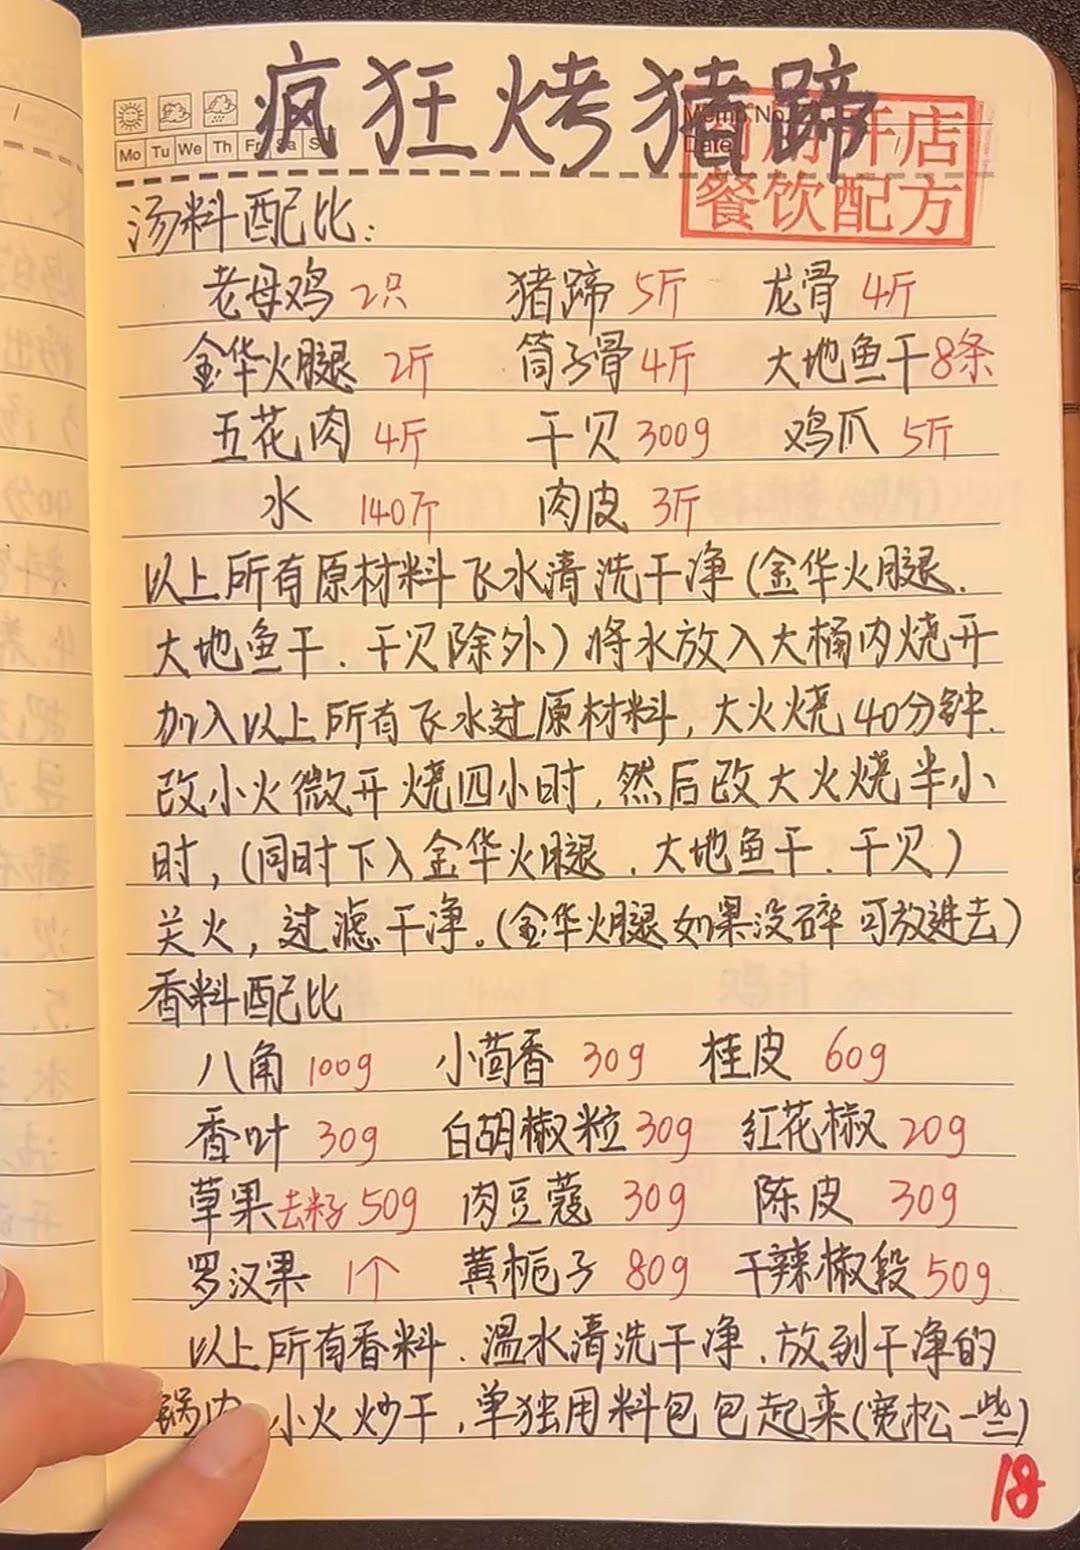 疯狂烤猪蹄
Memo No.
Mo Tu We Th Fr Sa S
Date
开店
餐饮配方
汤料配比:
老母鸡 2只 猪蹄 5斤 龙骨 4斤
金华火腿 2斤 筒子骨 4斤 大地鱼干 8条
五花肉 4斤 干贝 300g 鸡爪 5斤
水 140斤 肉皮 3斤
以上所有原材料飞水清洗干净(金华火腿、
大地鱼干、干贝除外)将水放入大桶内烧开
加入以上所有飞水过原材料,大火烧40分钟.
改小火微开烧四小时,然后改大火烧半小
时,(同时下入金华火腿、大地鱼干、干贝)
关火,过滤干净。(金华火腿如果没碎可放进去)
香料配比
八角 100g 小茴香 30g 桂皮 60g
香叶 30g 白胡椒粒 30g 红花椒 20g
草果去籽 50g 肉豆蔻 30g 陈皮 30g
罗汉果 1个 黄栀子 80g 干辣椒段 50g
以上所有香料、温水清洗干净、放到干净的
锅内 小火炒干,单独用料包包起来(宽松一些)
18